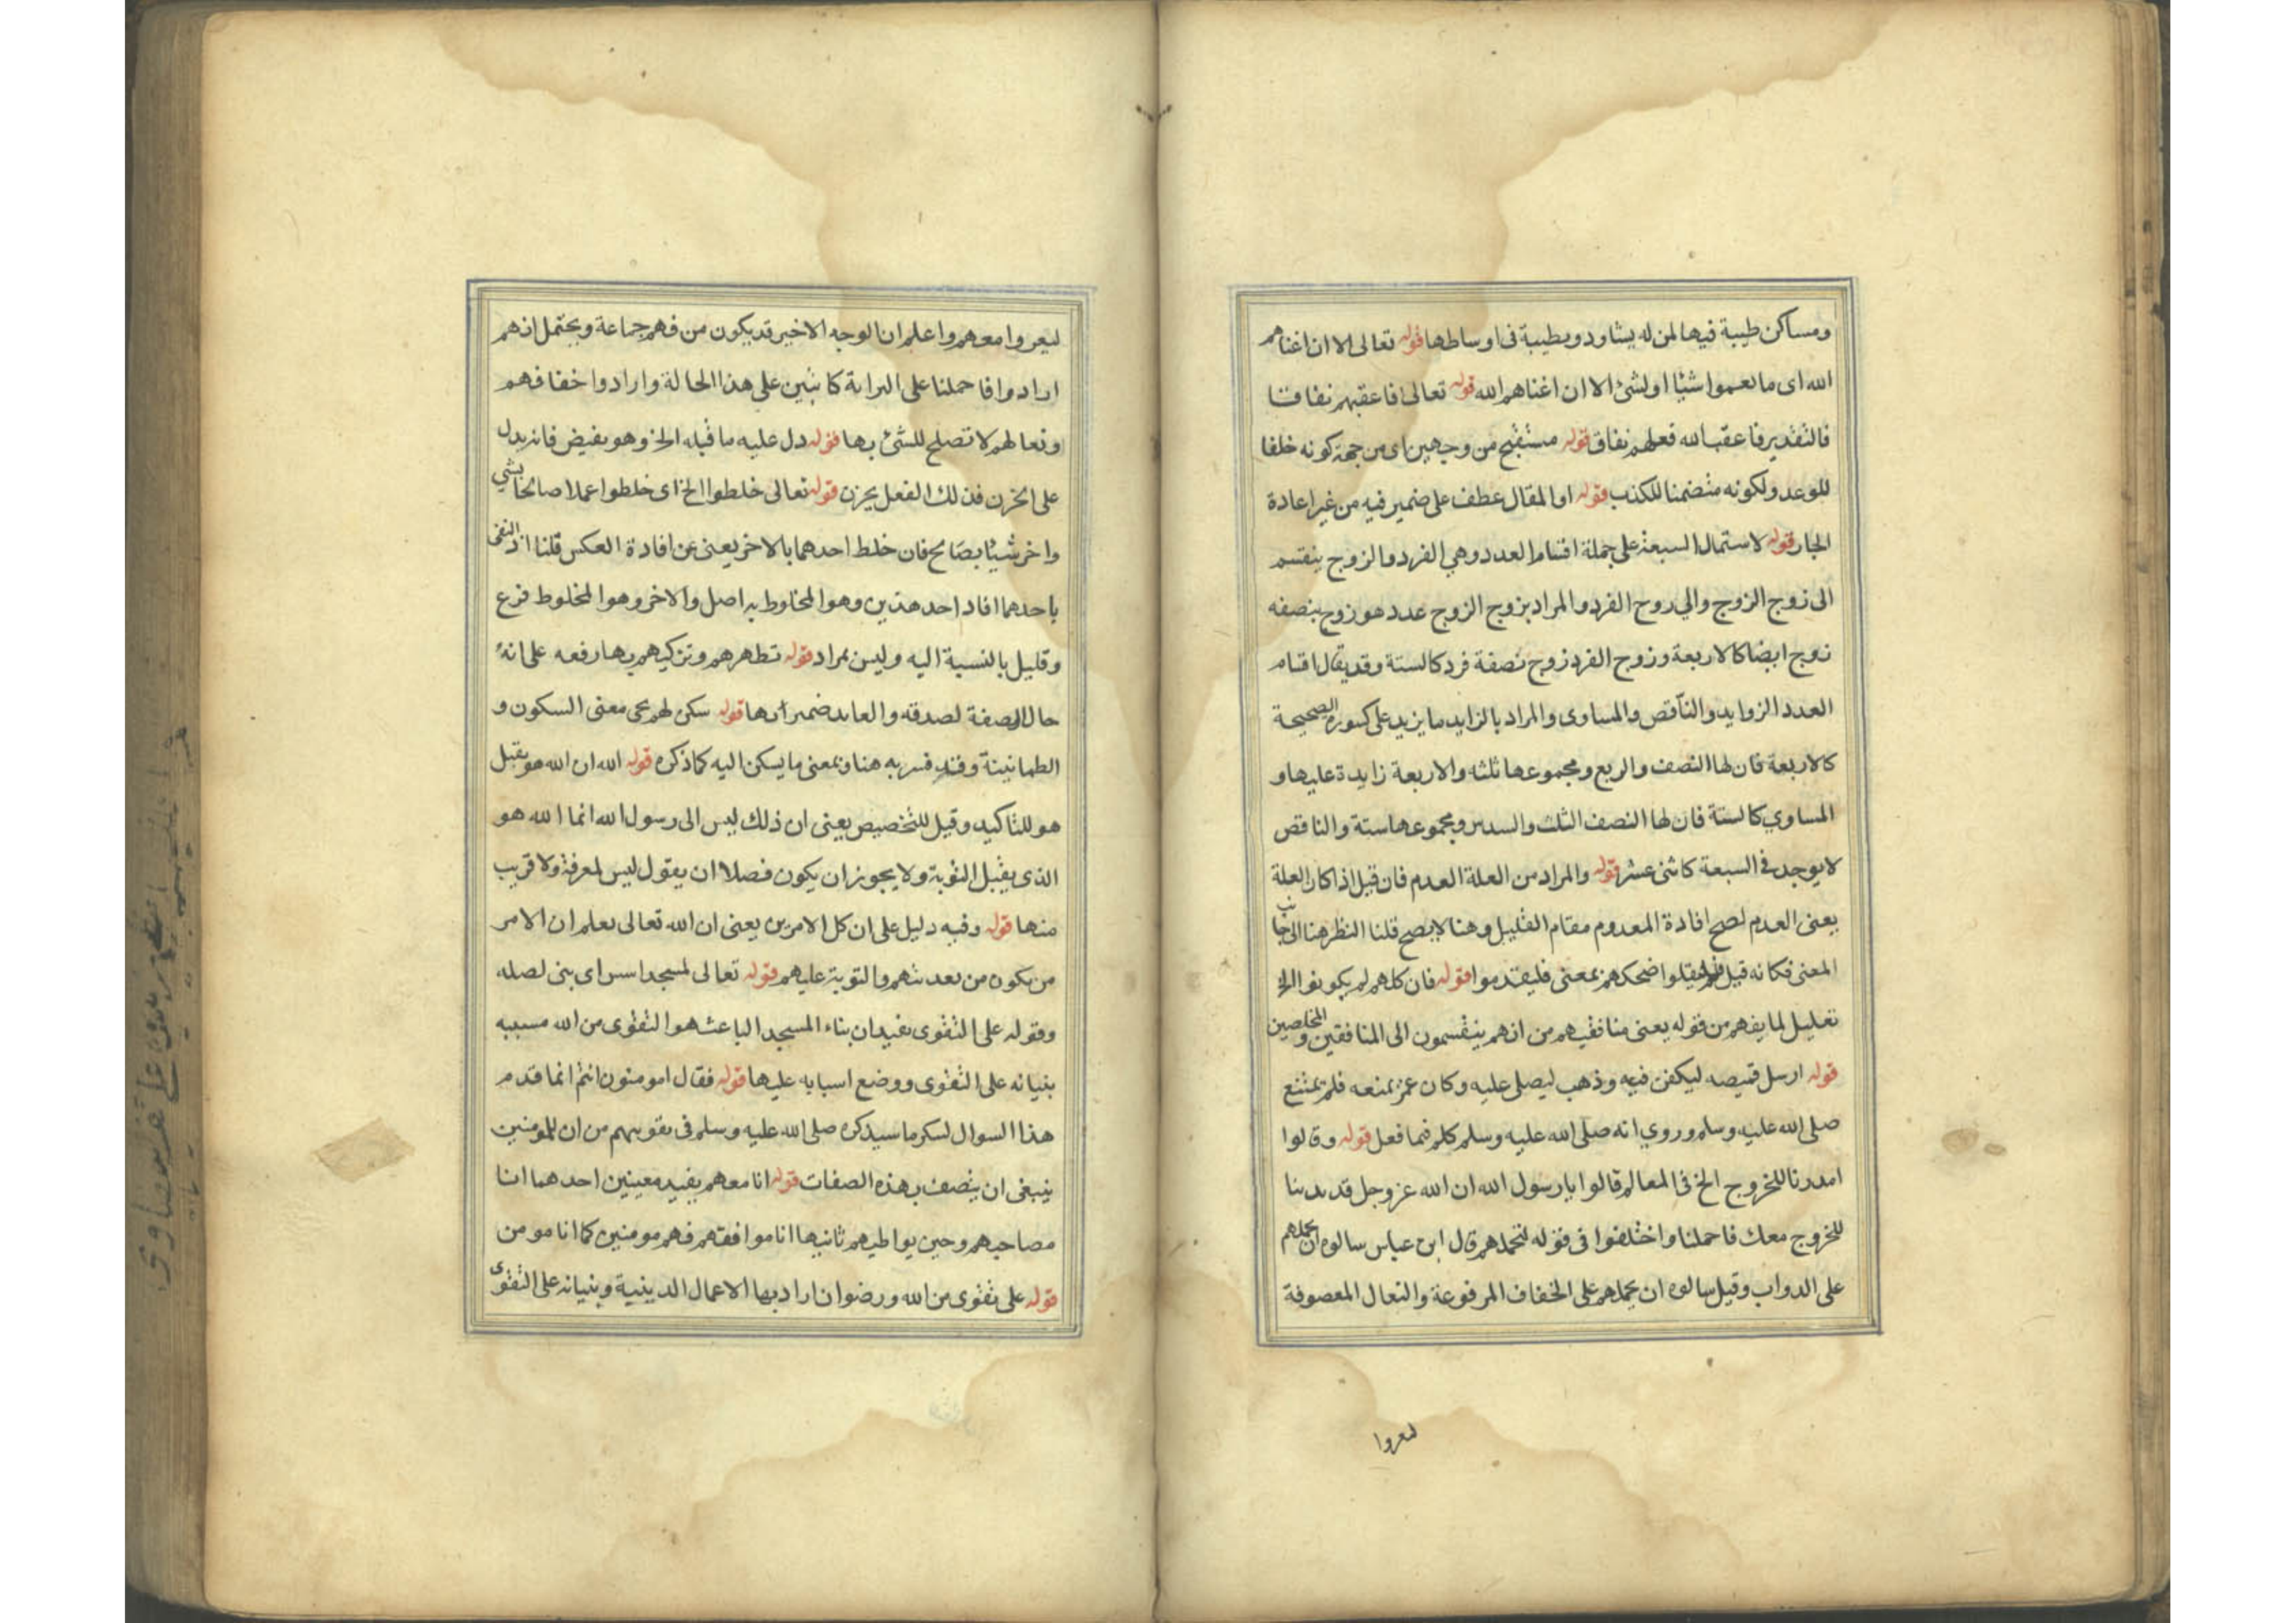 ومساكن طيبة فيها لمن له يشاود وبطيبة فى اوساطها قوله تعالى الا ان اغناهم
الله اى ما نعموا شيئا او لشئ الا ان اغناهم الله قوله تعالى فاعقبهم نفاقا
فالتقدير فاعقب الله فعلهم نفاق قوله مستقبح من وجهين اى من جهة كونه خلفا
للوعد ولكونه متضمنا للكذب قوله او المقال عطف على ضمير فيه من غير اعادة
الجار قوله لاستمال السبعة على جملة اقسام العدد وهي الفرد والزوج ينقسم
الى زوج الزوج والي روح الفرد والمراد بزوج الزوج عدد هو زوج بنصفه
زوج ايضا كالاربعة وزوج الفرد زوج نصفة فرد كالستة وقد يقال اقسام
العدد الزوايد والناقص والمساوى والمراد بالزايد ما يزيد على كسوره الصحيحة
كالاربعة فان لها النصف والربع ومجموعها ثلثه والاربعة زايدة عليها و
المساوي كالستة فان لها النصف الثلث والسدس ومجموعها ستة والناقص
لا يوجد فى السبعة كاثنى عشر قوله والمراد من العلة العدم فان قيل اذا كان العلة
بمعنى العدم لصح افادة المعدوم مقام القليل وهنا لا يصح قلنا النظر هنا الى جانب
المعنى فكانه قيل فليقلوا ضحكهم بمعنى فليقدموا قوله فان كلهم لم يكونوا الخ
تعليل لما يفهم من قوله يعنى منافقيهم من انهم ينقسمون الى المنافقين والمخلصين
قوله ارسل قميصه ليكفن فيه وذهب ليصلى عليه وكان عمر يمنعه فلم يمتنع
صلى الله عليه وسلم وروي انه صلى الله عليه وسلم كلم فيما فعل قوله وقالوا
امدرنا للخروج الخ فى المعالم قالوا يا رسول الله ان الله عز وجل قد بدبنا
للخروج معك فاحملنا واختلفوا فى قوله لتحملهم قال ابن عباس سالوه ان يحملهم
على الدواب وقيل سالوه ان يحملهم على الخفاف المرفوعة والنعال المعصوفة
لىعروا
ليعروا معهم واعلم ان الوجه الاخير قد يكون من فهم جماعة ويحتمل انهم
ارادوا فاحملنا على البراىة كاشين على هذا الحالة وارادوا خفافهم
ونعالهم لا تصلح للشئ بها قوله دل عليه ما قبله الخ وهو يفيض فانه يدل
على الحزن فذلك الفعل يحزن قوله تعالى خلطوا الخ اى خلطوا عملا صالحا بشي
واخر شيئا بصالح فان خلط احدهما بالاخر يعنى عن افادة العكس قلنا اذ النفى
باحدهما افاد احد هذين وهو المخلوط به اصل والاخر وهو المخلوط فرع
وقليل بالنسبة اليه وليس بمراد قوله تطهرهم وتزكيهم بها رفعه على انه
حال او صفة لصدقه والعايد ضمير ارها قوله سكن لهم يجى معنى السكون و
الطمانينة وقد فسر به هنا وبمعنى ما يسكن اليه كما ذكره قوله الله ان الله هو يقبل
هو للتاكيد وقيل للتخصيص يعنى ان ذلك ليس الى رسول الله انما الله هو
الذى يقبل التوبة ولا يجوز ان يكون فصلا ان يقول ليس لمعرفة ولا قريب
منها قوله وفيه دليل على ان كل الامرين يعنى ان الله تعالى يعلم ان الامر
من يكون من بعد شهم والتوبة عليهم قوله تعالى لمسجد اسس اى بنى لصله
وقوله على التقوى يفيد ان بناء المسجد الباعث هو التقوى من الله مسببه
بنيانه على التقوى ووضع اسبابه عليها قوله فقال امومنون انتم انما قدم
هذا السوال لسكر ما سيذكره صلى الله عليه وسلم فى نقويهم من ان للمومنين
ينبغى ان يتصف بهذه الصفات قوله انا معهم يفيد معينين احدهما انا
مصاحبهم وحين يواطيهم ثانيها انا موافقهم فهم مومنين كما انا مومن
قوله على تقوى من الله ورضوان اراد بها الاعمال الدينية وبنيانه على التقوى